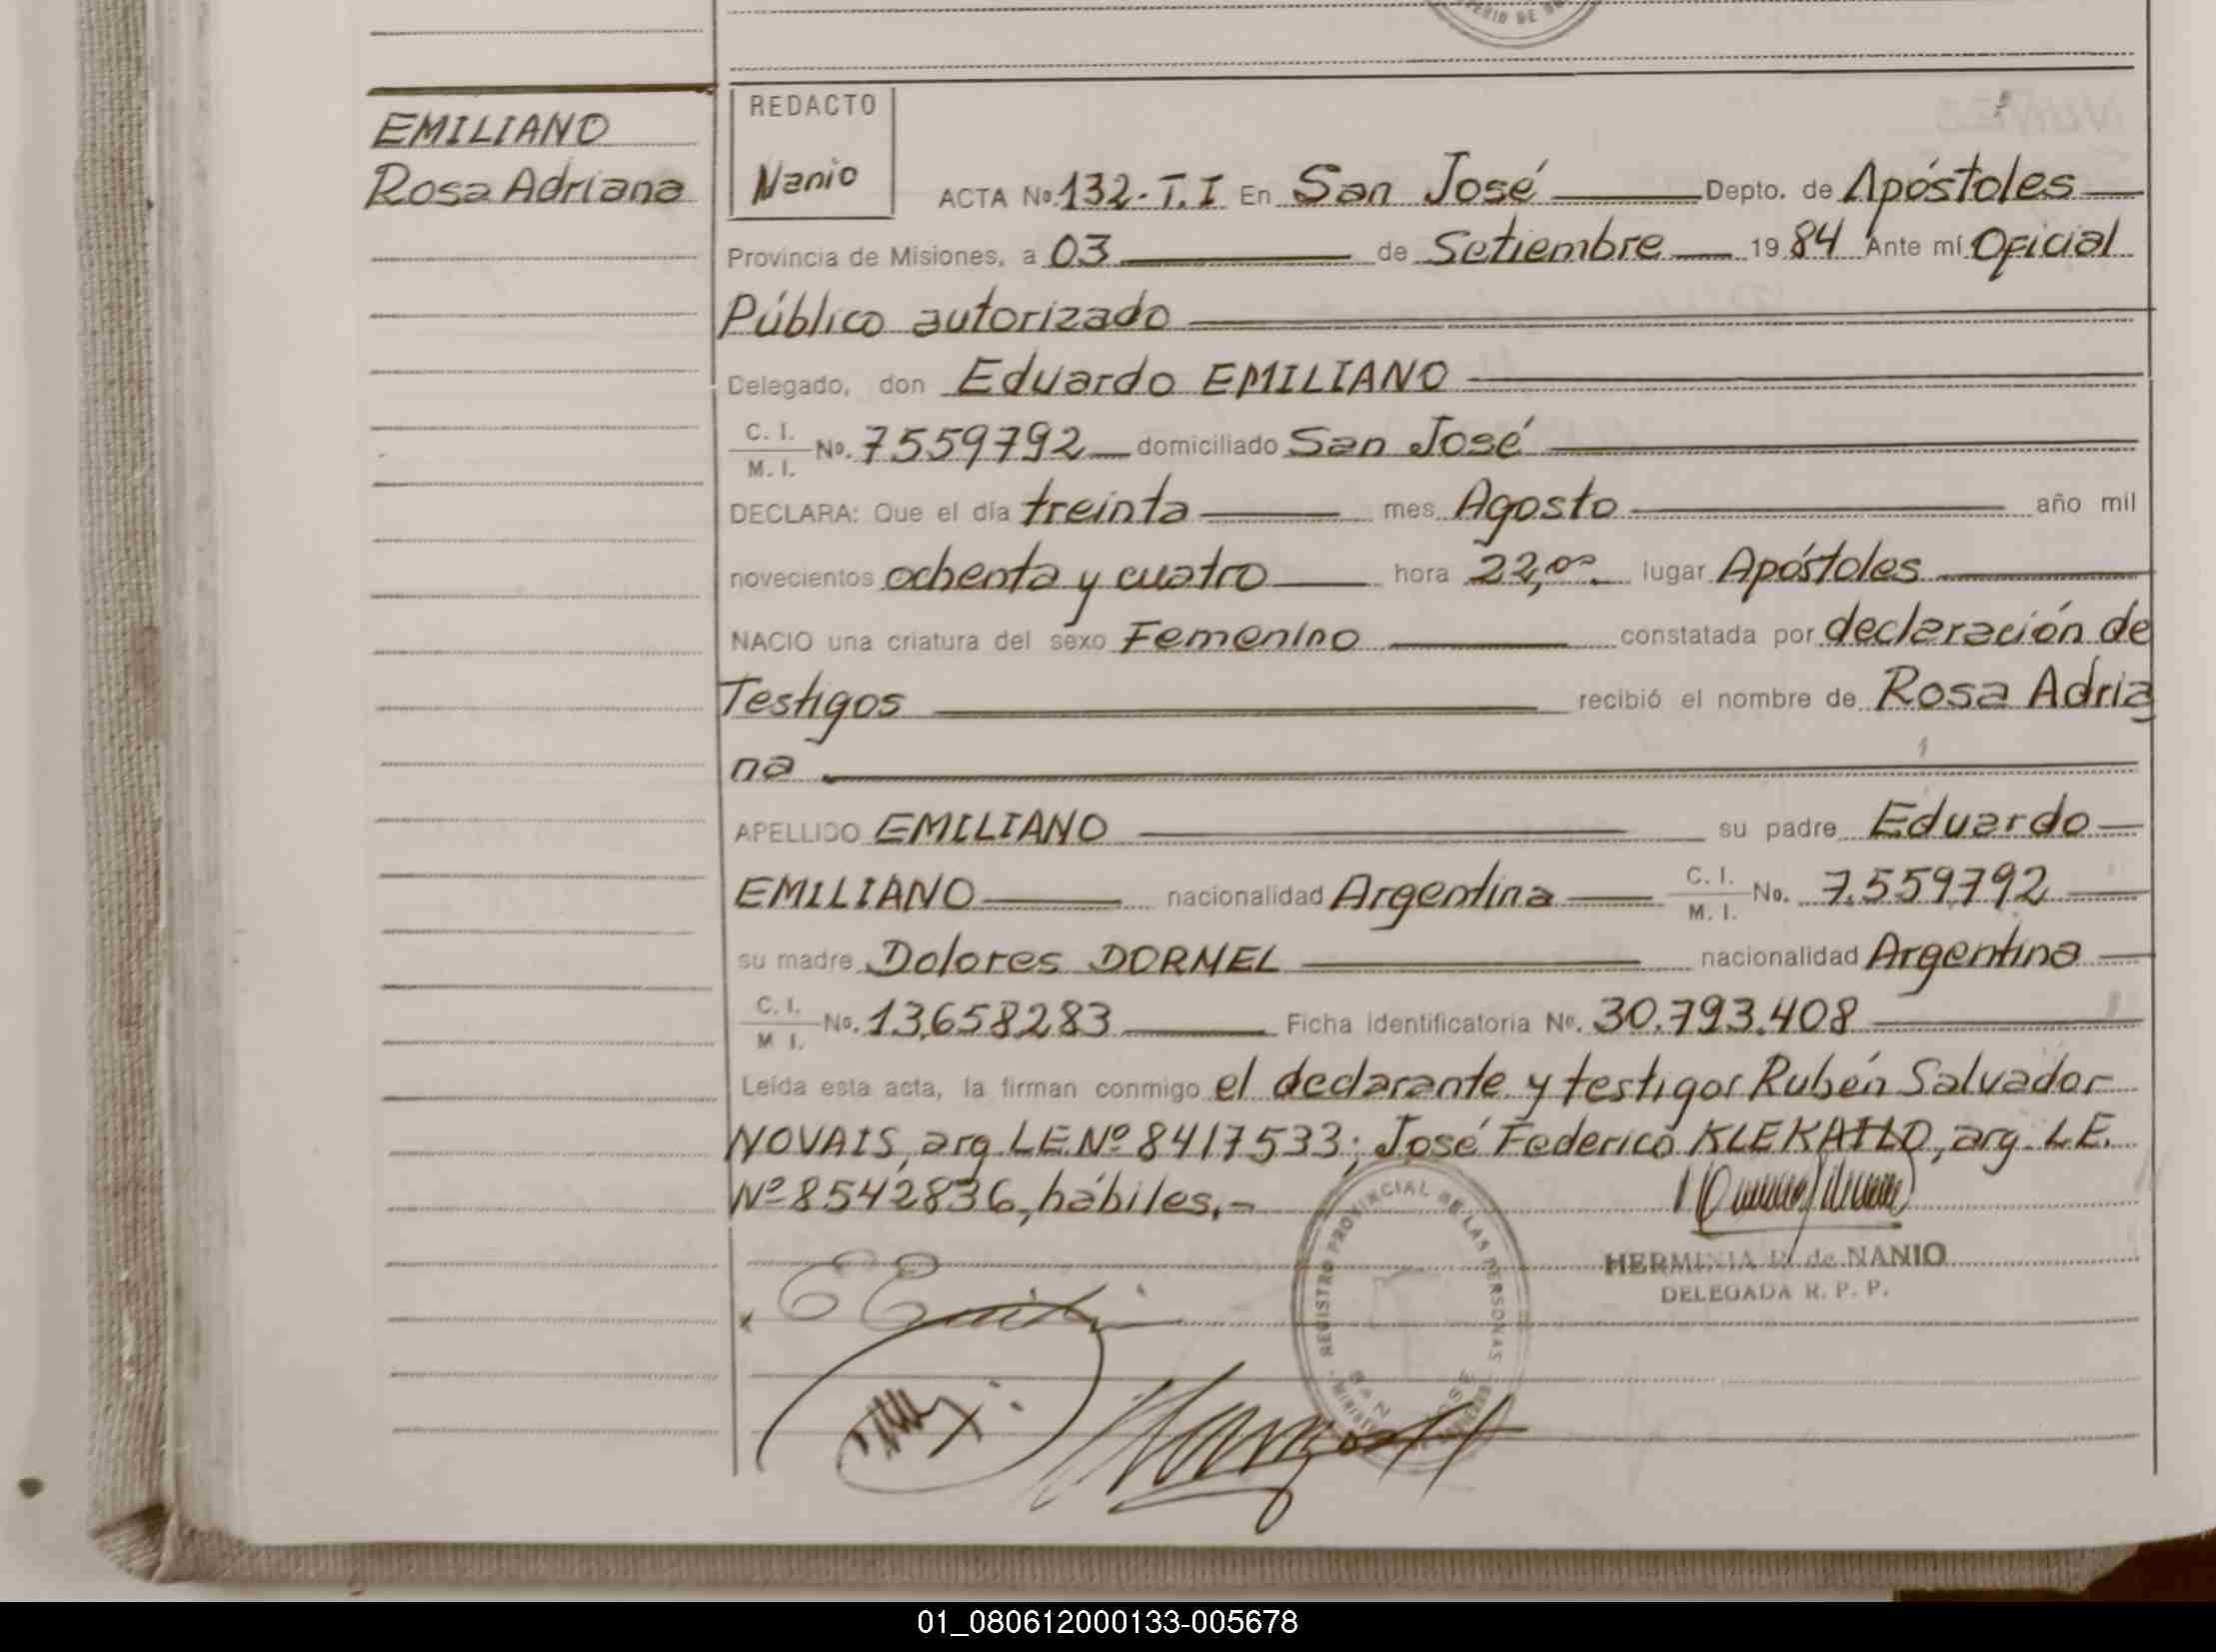 EMILIANO
Rosa Adriana
REDACTO
Nanio
ACTA No. 132-T.I En San José Depto. de Apóstoles
Provincia de Misiones, a 03 de Setiembre 1984 Ante mí Oficial
Público autorizado
Delegado, don Eduardo EMILIANO
C. I. / M. I. No. 7559792 domiciliado San José
DECLARA: Que el día treinta mes Agosto año mil
novecientos ochenta y cuatro hora 22,00 lugar Apóstoles
NACIO una criatura del sexo Femenino constatada por declaración de
Testigos recibió el nombre de Rosa Adria
na
APELLIDO EMILIANO su padre Eduardo
EMILIANO nacionalidad Argentina C. I. / M. I. No. 7.559.792
su madre Dolores DORNEL nacionalidad Argentina
C. I. / M. I. No. 13.658283 Ficha identificatoria No. 30.793.408
Leída esta acta, la firman conmigo el declarante y testigos Rubén Salvador
NOVAIS, arg. L.E. Nº 8417533; José Federico KLEKAILO, arg. L.E.
Nº 8542836, hábiles.-
REGISTRO PROVINCIAL DE LAS PERSONAS
SAN JOSE
HERMINIA de NANIO
DELEGADA R. P. P.
01_080612000133-005678